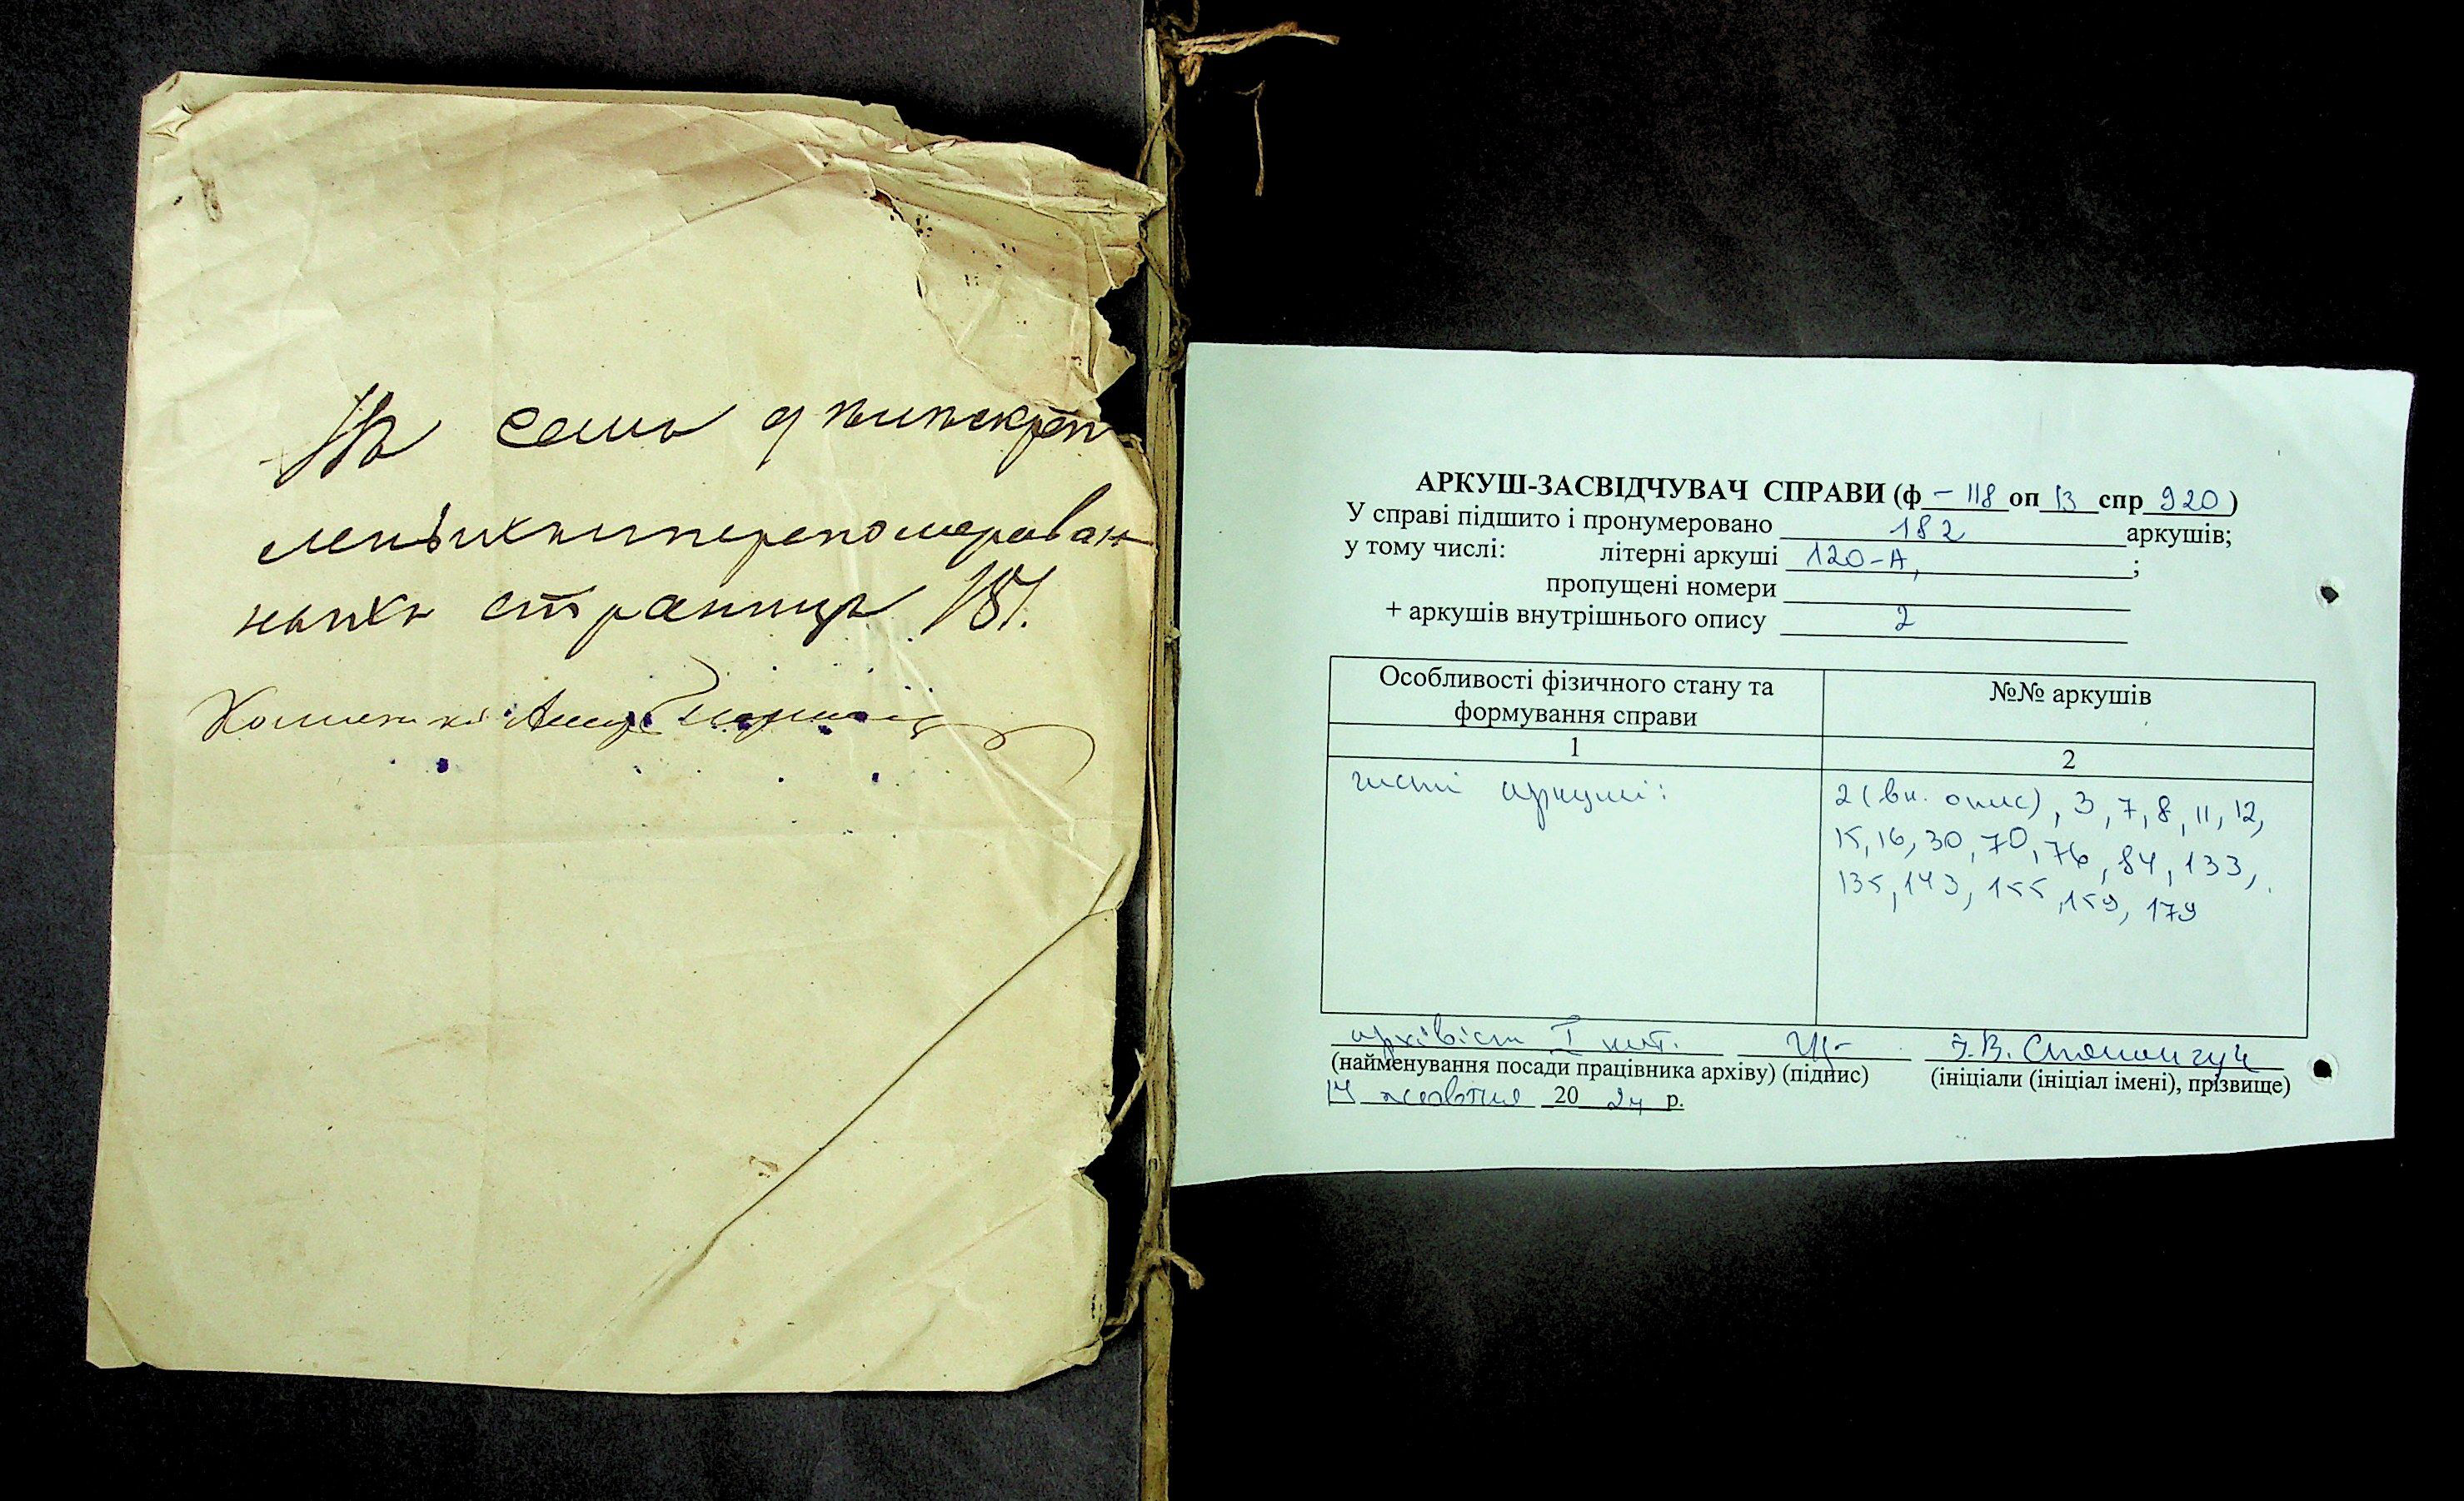 Въ семъ дѣлѣ скрѣп
ленныхъ и переномерован
ныхъ страницъ 181.
АРКУШ-ЗАСВІДЧУВАЧ СПРАВИ (ф - 118 оп 13 спр 920)
У справі підшито і пронумеровано 182 аркушів;
у тому числі: літерні аркуші 120-А, ;
пропущені номери
+ аркушів внутрішнього опису 2
Особливості фізичного стану та
формування справи
№№ аркушів
1
2
чисті аркуші:
2 (вн. опис), 3, 7, 8, 11, 12,
15, 16, 30, 70, 76, 84, 133,
135, 143, 155, 159, 179
архівіст I кат.
(найменування посади працівника архіву) (підпис) (ініціали (ініціал імені), прізвище)
14 жовтня 2024 р.